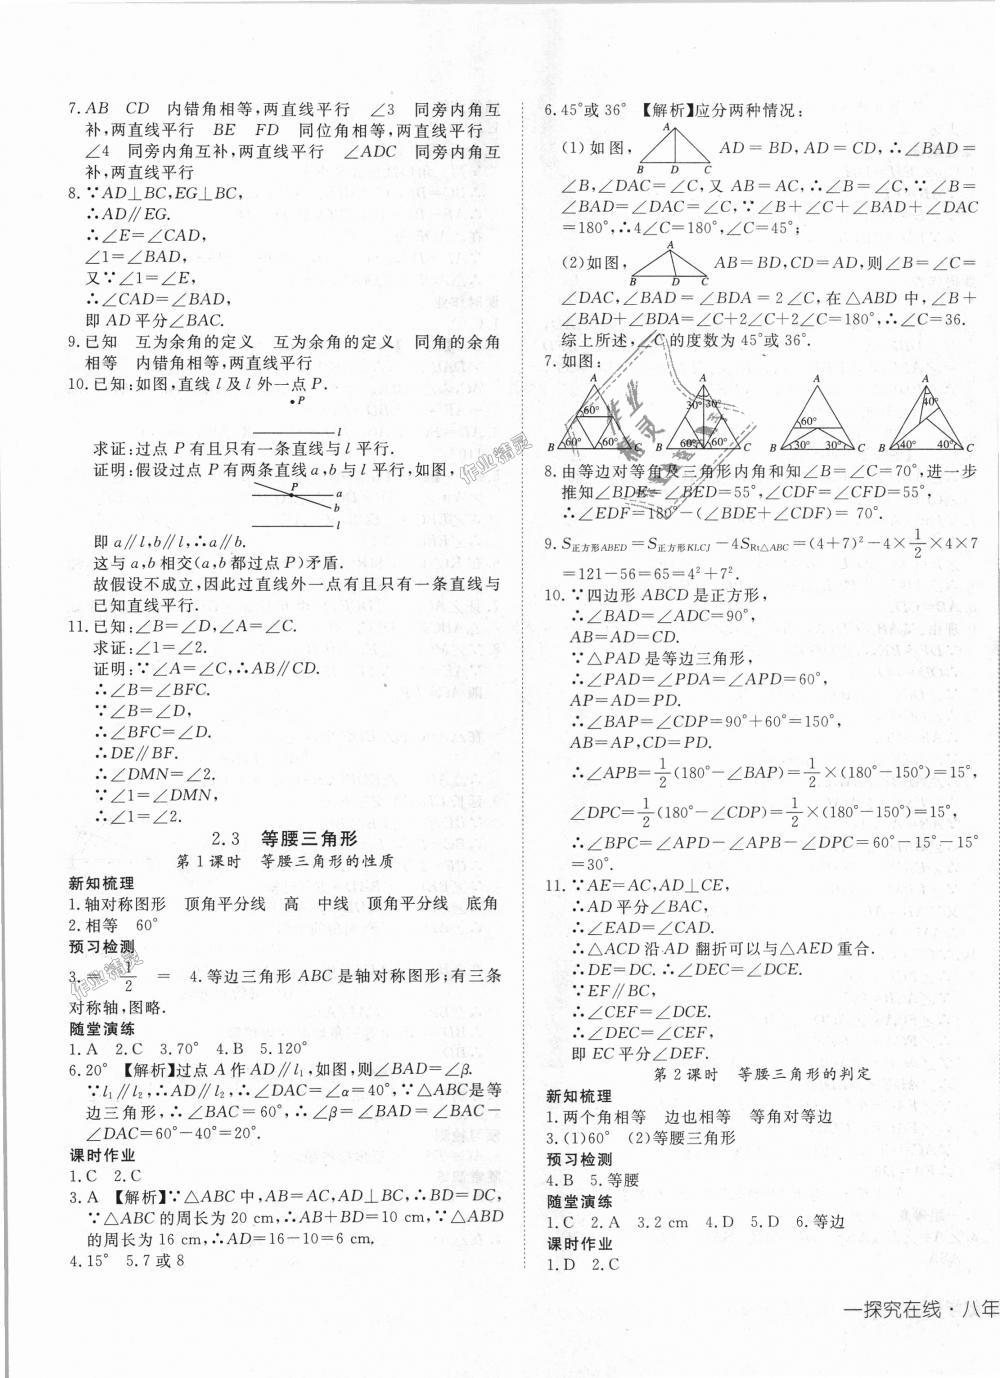 7. AB　CD　内错角相等,两直线平行　∠3　同旁内角互
补,两直线平行　BE　FD　同位角相等,两直线平行
∠4　同旁内角互补,两直线平行　∠ADC　同旁内角互
补,两直线平行
8. ∵AD⊥BC,EG⊥BC,
∴AD∥EG.
∴∠E=∠CAD,
∠1=∠BAD,
又∵∠1=∠E,
∴∠CAD=∠BAD,
即 AD平分∠BAC.
9. 已知　互为余角的定义　互为余角的定义　同角的余角
相等　内错角相等,两直线平行
10. 已知:如图,直线 l 及 l 外一点 P.
P
l
求证:过点 P 有且只有一条直线与 l 平行.
证明:假设过点 P 有两条直线 a,b 与 l 平行,如图,
P
a
b
l
即 a∥l,b∥l,∴a∥b.
这与 a,b 相交(a,b 都过点 P)矛盾.
故假设不成立,因此过直线外一点有且只有一条直线与
已知直线平行.
11. 已知:∠B=∠D,∠A=∠C.
求证:∠1=∠2.
证明:∵∠A=∠C,∴AB∥CD.
∴∠B=∠BFC.
∵∠B=∠D,
∴∠BFC=∠D.
∴DE∥BF.
∴∠DMN=∠2.
∵∠1=∠DMN,
∴∠1=∠2.
2.3　等腰三角形
第 1 课时　等腰三角形的性质
新知梳理
1. 轴对称图形　顶角平分线　高　中线　顶角平分线　底角
2. 相等　60°
预习检测
3. =　1/2　=　4. 等边三角形 ABC 是轴对称图形;有三条
对称轴,图略.
随堂演练
1. A　2. C　3. 70°　4. B　5. 120°
6. 20°　【解析】过点 A 作 AD∥l₁,如图,则∠BAD=∠β.
∵l₁∥l₂,∴AD∥l₂,∴∠DAC=∠α=40°,∵△ABC是等
边三角形,∴∠BAC=60°,∴∠β=∠BAD=∠BAC-
∠DAC=60°-40°=20°.
课时作业
1. C　2. C
3. A　【解析】∵△ABC 中,AB=AC,AD⊥BC,∴BD=DC,
∵△ABC 的周长为 20 cm,∴AB+BD=10 cm,∵△ABD
的周长为 16 cm,∴AD=16-10=6 cm.
4. 15°　5. 7 或 8
6. 45°或 36°　【解析】应分两种情况:
(1)如图,　A B D C　AD=BD,AD=CD,∴∠BAD=
∠B,∠DAC=∠C,又 AB=AC,∴∠B=∠C,∵∠B=
∠BAD=∠DAC=∠C,∵∠B+∠C+∠BAD+∠DAC
=180°,∴4∠C=180°,∠C=45°;
(2)如图,　A B D C　AB=BD,AD=CD,则∠B=∠C=
∠DAC,∠BAD=∠BDA=2∠C,在△ABD 中,∠B+
∠BAD+∠BDA=∠C+2∠C+2∠C=180°,∴∠C=36.
综上所述,∠C 的度数为 45°或 36°.
7. 如图:
A 60° 60° 60° B C
A 30° 30° 60° 60° B C
A 60° 30° 30° B C
A 40° 40° 40° B C
8. 由等边对等角及三角形内角和知∠B=∠C=70°,进一步
推知∠BDE=∠BED=55°,∠CDF=∠CFD=55°,
∴∠EDF=180°-(∠BDE+∠CDF)= 70°.
9. S正方形ABED=S正方形KLCJ-4SRt△ABC=(4+7)²-4×1/2×4×7
=121-56=65=4²+7².
10. ∵四边形 ABCD 是正方形,
∴∠BAD=∠ADC=90°,
AB=AD=CD.
∵△PAD 是等边三角形,
∴∠PAD=∠PDA=∠APD=60°,
AP=AD=PD.
∴∠BAP=∠CDP=90°+60°=150°,
AB=AP,CD=PD.
∴∠APB=1/2(180°-∠BAP)=1/2×(180°-150°)=15°,
∠DPC=1/2(180°-∠CDP)=1/2×(180°-150°)=15°,
∴∠BPC=∠APD-∠APB-∠DPC=60°-15°-15°
=30°.
11. ∵AE=AC,AD⊥CE,
∴AD 平分∠BAC,
∴∠EAD=∠CAD.
∴△ACD 沿 AD 翻折可以与△AED 重合.
∴DE=DC.∴∠DEC=∠DCE.
∵EF∥BC,
∴∠CEF=∠DCE.
∴∠DEC=∠CEF.
即 EC 平分∠DEF.
第 2 课时　等腰三角形的判定
新知梳理
1. 两个角相等　边也相等　等角对等边
3. (1)60°　(2)等腰三角形
预习检测
4. B　5. 等腰
随堂演练
1. C　2. A　3. 2 cm　4. D　5. D　6. 等边
课时作业
1. D　2. C
一探究在线·八年